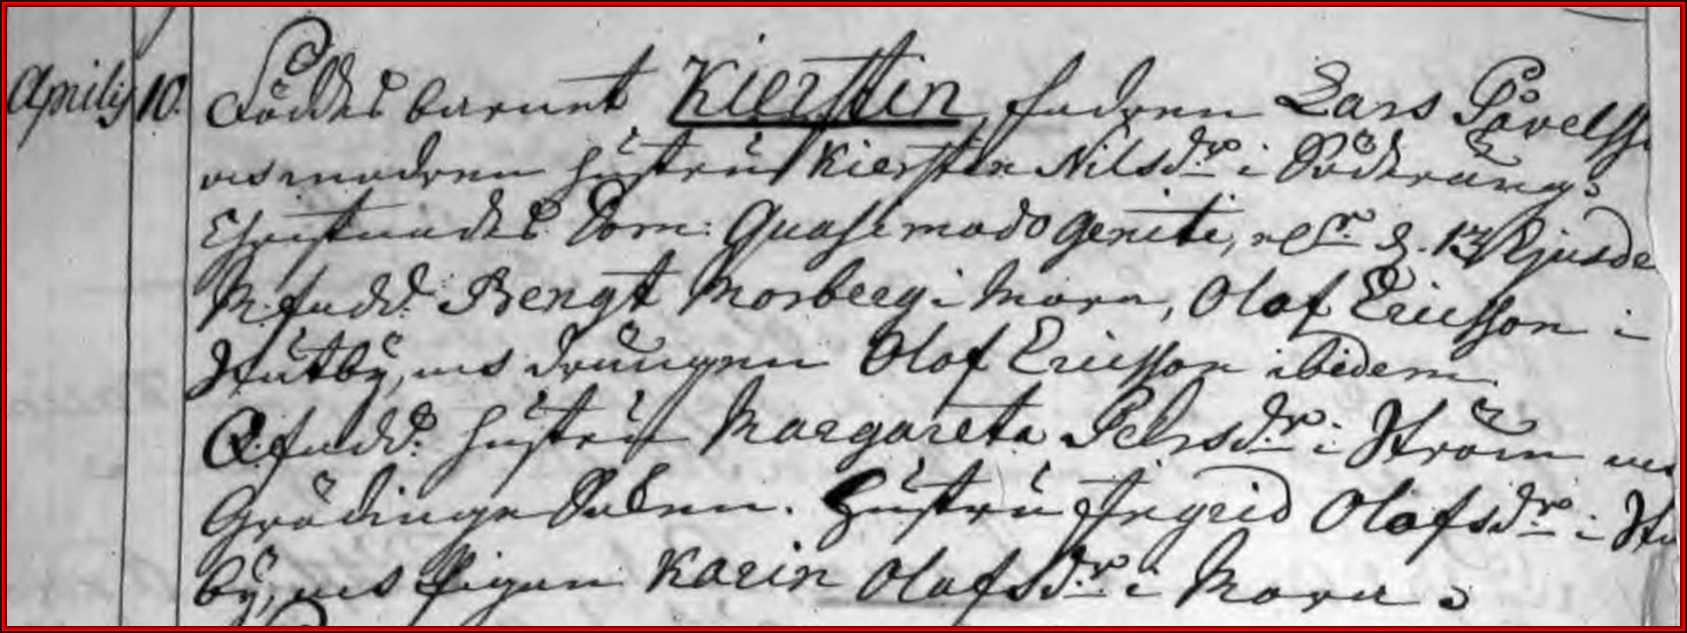 Aprilis 10. Föddes barnet Kierstin, fadren Lars Påvelss
och modren hustru Kierstin Nilsdr. i Söderäng.
Christnades Dom: Quasimodogeniti, el. d. 13 Ejusde
M. fadd. Bengt Morberg i Mora, Olof Ericsson i
Stutby, och drängen Olof Ericsson ibidem.
Q. fadd. hustru Margareta Pehrsdr. i Ström och
Grödinge Sokn. Hustru Ingrid Olofsdr. i Stu
by, och Pigan Karin Olofsdr. i Mora